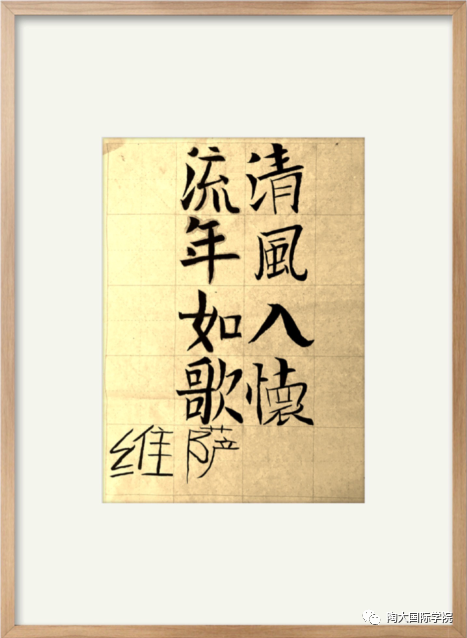 清風入懐
流年如歌
维萨
陶大国际学院